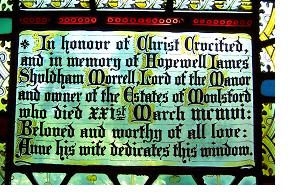 * In honour of Christ Crucified,
and in memory of Hopewell James
Shuldham Morrell, Lord of the Manor
and owner of the Estates of Moulsford
who died XXIst March MCMVI:
Beloved and worthy of all love:
Anne his wife dedicates this window.